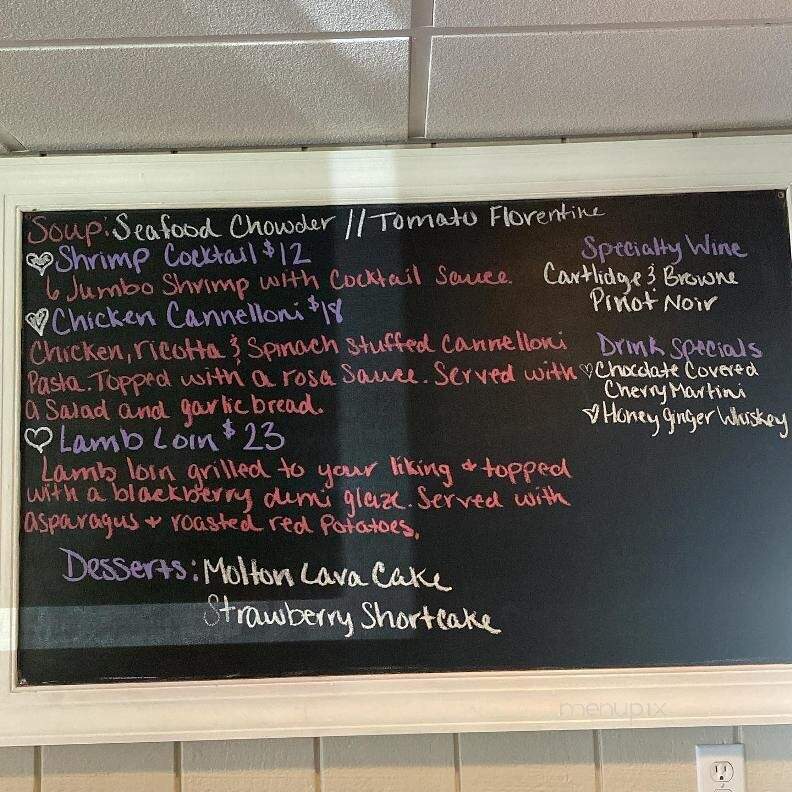 Soup: Seafood Chowder // Tomato Florentine
Shrimp Cocktail $12
6 Jumbo Shrimp with Cocktail Sauce.
Chicken Cannelloni $18
Chicken, ricotta & Spinach stuffed cannelloni
Pasta. Topped with a rosa Sauce. Served with
a Salad and garlic bread.
Lamb Loin $23
Lamb loin grilled to your liking + topped
with a blackberry demi glaze. Served with
asparagus + roasted red Potatoes.
Desserts: Molton Lava Cake
Strawberry Shortcake
Specialty Wine
Cartlidge & Browne
Pinot Noir
Drink Specials
Chocolate Covered
Cherry Martini
Honey ginger Whiskey
menupix